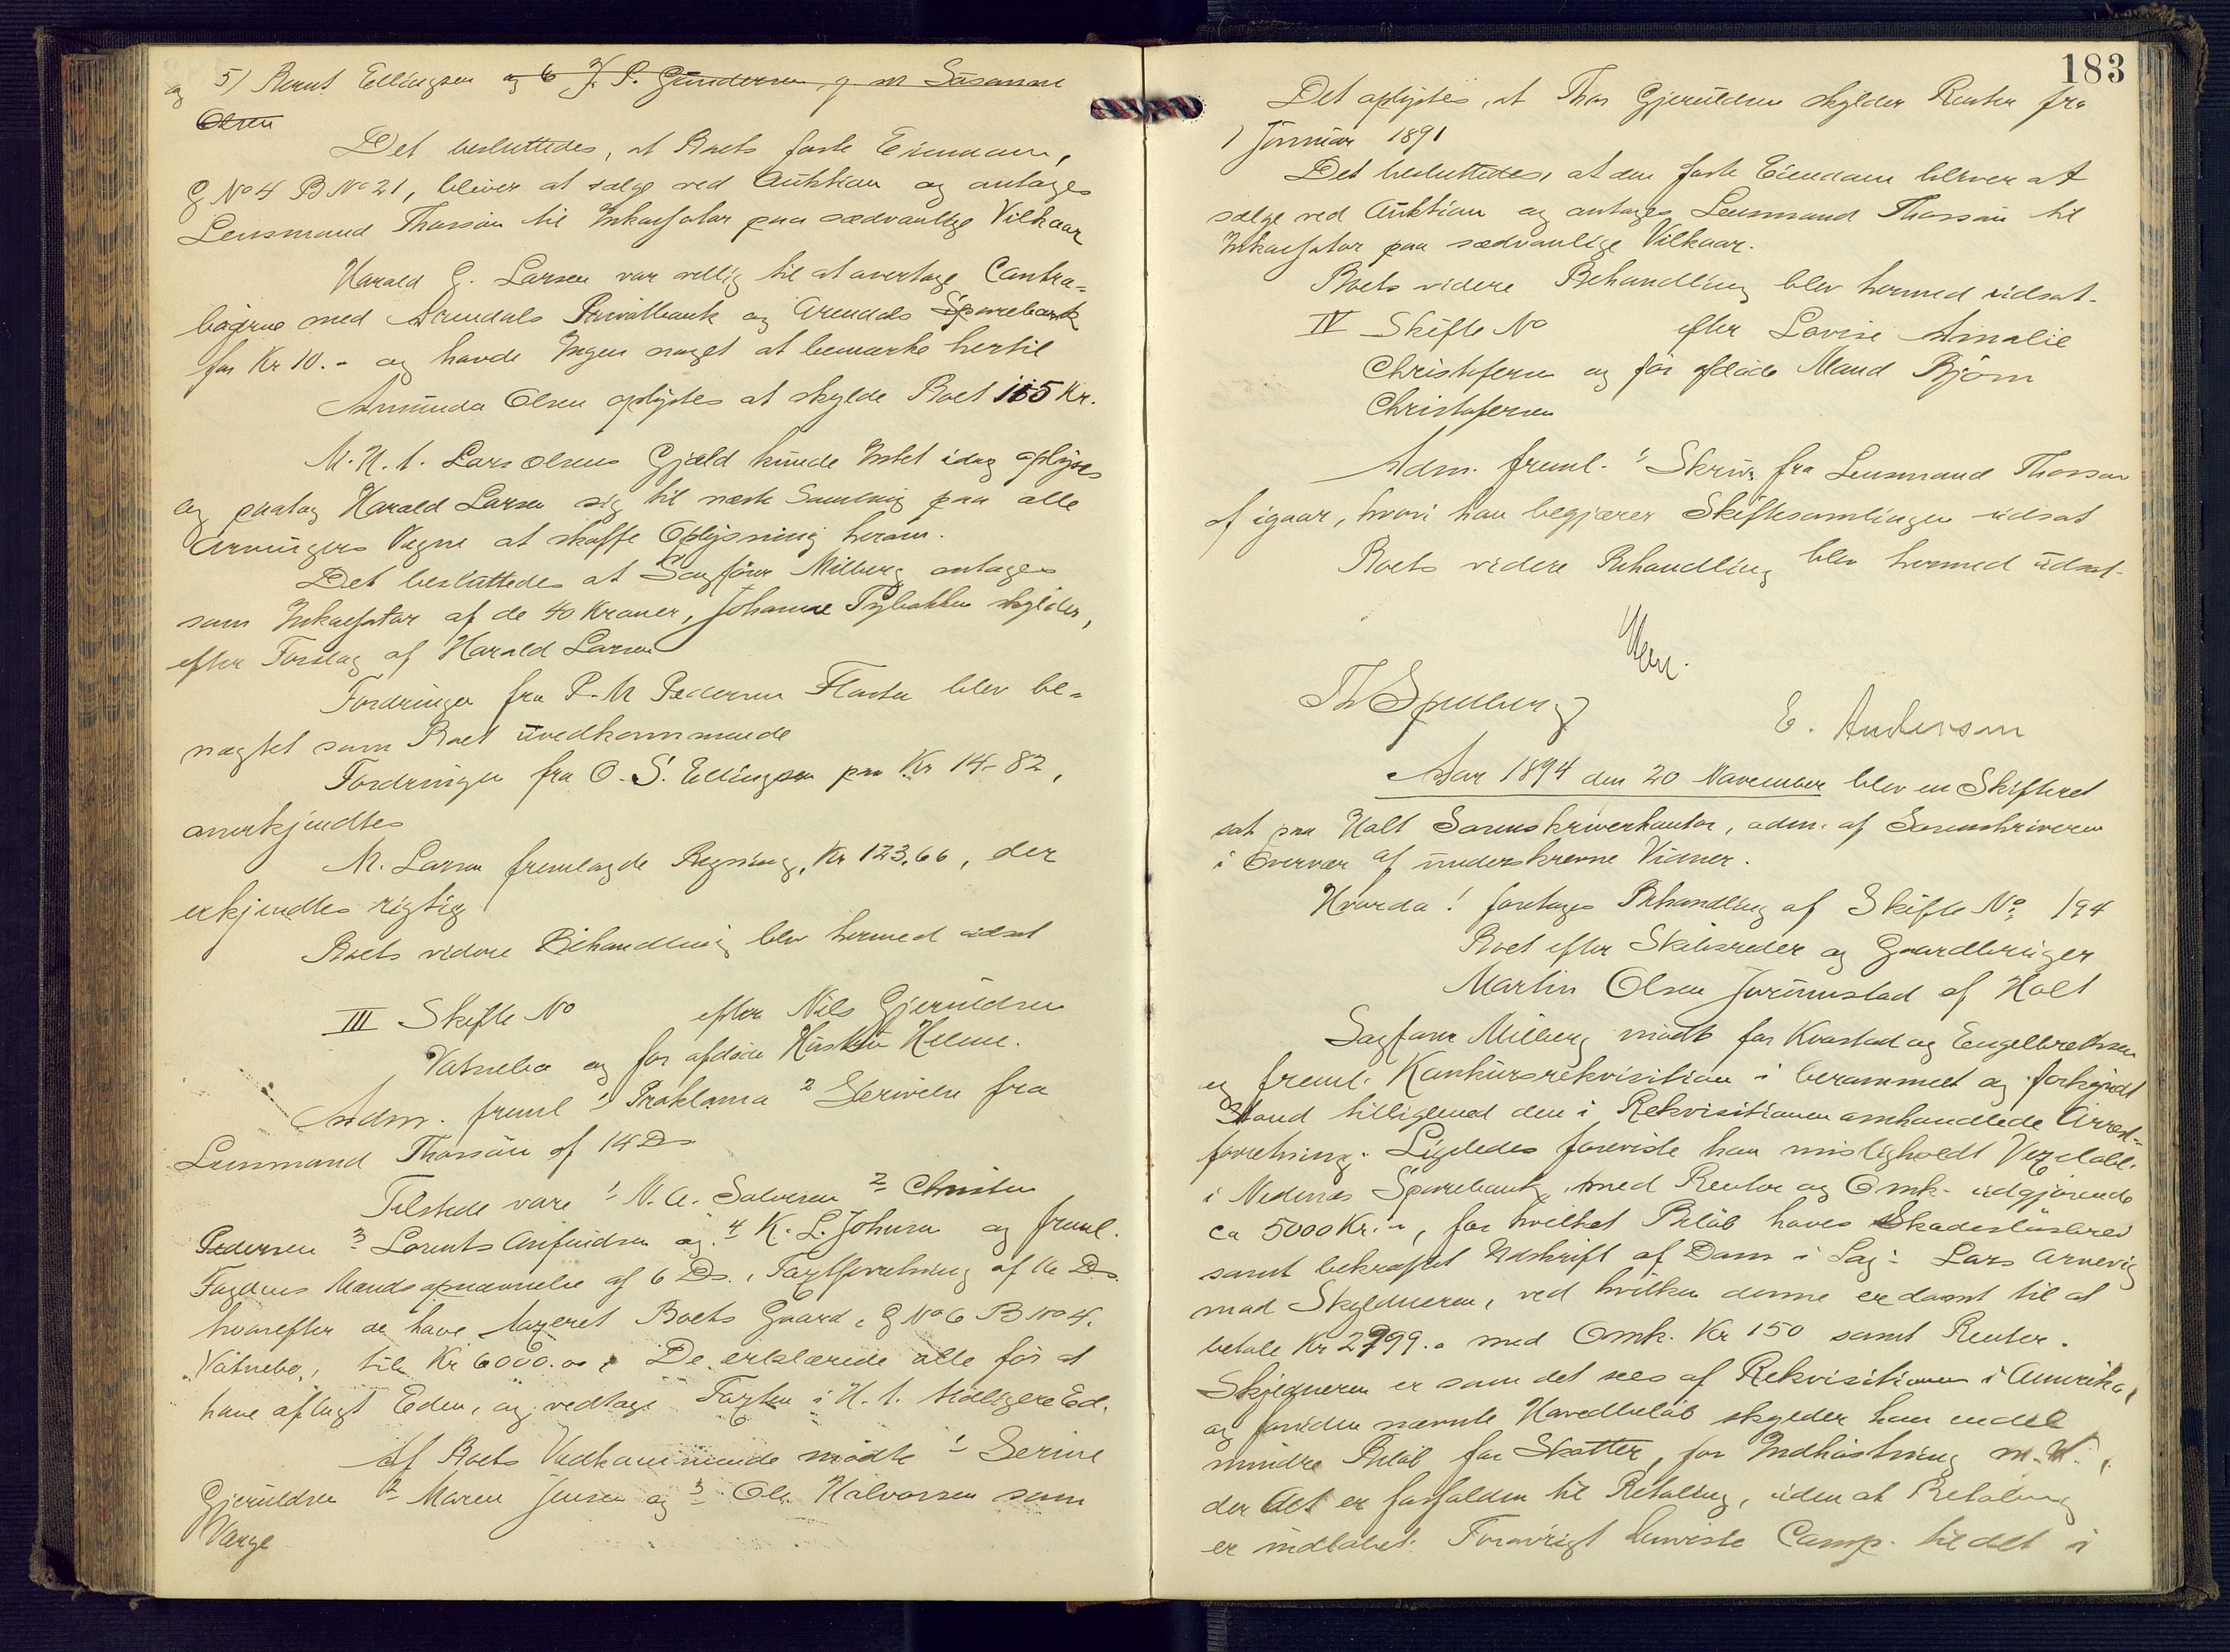 og 5) Bernt Ellingsen og 6 J. P. Gundersen g m Susanne
Olsen
Det besluttedes, at Boets faste Eiendom,
G No 4 B No 21, bliver at sælge ved Auktion og antages
Lensmand Thorsøn til Inkassator paa sædvanlige Vilkaar
Harald G. Larsen var villig til at overtage Contra-
bøgerne med Arendals Privatbank og Arendals Sparebank
for Kr 10.- og havde Ingen noget at bemærke hertil
Amunda Olsen oplystes at skylde Boet 115 Kr.
M. H. t. Lars Olsens Gjæld kunde Intet idag oplyses
og paatog Harald Larsen sig til næste Samling paa alle
Arvingers Vegne at skaffe Oplysning herom.
Det besluttedes at Sagfører Milberg antages
som Inkassator af de 40 Kroner, Johanne Tybakken skylder,
efter Forslag af Harald Larsen
Fordringen fra P. M Pedersen Flosta blev be-
nægtet som Boet uvedkommende
Fordringen fra O. S. Ellingsen paa Kr 14-82,
anerkjendtes
M. Larsen fremlagde Regning, Kr 123,66, der
erkjendtes rigtig
Boets videre Behandling blev hermed udsat
III Skifte No efter Nils Gjeruldsen
Vatnebo og før afdøde Hustru Helene.
Adm. freml 1 Proklama 2 Skrivelse fra
Lensmand Thorsøn af 14 Ds
Tilstede vare 1 N. A. Salvesen 2 Christen
Pedersen 3 Lorents Arnfindsen og 4 K. L. Johnsen og freml.
Fogdens Mandsopnævnelse af 6 Ds., Taxtforretning af 16 Ds.
hvorefter de have taxeret Boets Gaard, G No 6 B No 4.
"Vatnebo", til Kr 6000.00. De erklærede alle før at
have aflagt Eden, og vedtage Taxten i H. t. tidligere Ed.
Af Boets Vedkommende mødte 1 Serine
Gjeruldsen 2 Maren Jensen og 3 Ole Halvorsen som
Værge
183
Det oplystes, at Thor Gjeruldsen skylder Renter fra
1 Januar 1891
Det besluttedes, at den faste Eiendom bliver at
sælge ved Auktion og antages Lensmand Thorsøn til
Inkassator paa sædvanlige Vilkaar.
Boets videre Behandling blev hermed udsat.
IV Skifte No efter Lovise Amalie
Christofersen og før afdøde Mand Bjørn
Christofersen
Adm. freml. 1 Skriv. fra Lensmand Thorsøn
af igaar, hvori han begjærer Skiftesamlingen udsat
Boets videre Behandling blev hermed udsat.
Th Spilberg
E. Andersen
Aar 1894 den 20 November blev en Skifteret
sat paa Holt Sorenskriverkontor, adm. af Sorenskriveren
i Overvær af underskrevne Vidner.
Hvorda! foretages Behandling af Skifte No 194
Boet efter Skibsreder og Gaardbruger
Martin Olsen Jorunnstad af Holt
Sagfører Milberg mødte for Kvastad og Engelbrethsen
og freml. Konkursrekvisition i berammet og forkyndt
Stand tilligemed den i Rekvisitionen omhandlede Arrest-
forretning. Ligeledes foreviste han misligholdt Vexelobl.
i Nedenes Sparebank, med Renter og Omk. udgjørende
ca 5000 Kr. ", for hvilket Beløb haves Skadesløsbrev
samt bekræftet Udskrift af Dom i Sag: Lars Arnevig
mod Skyldneren, ved hvilken denne er dømt til at
betale Kr 2999.0 med Omk. Kr 150 samt Renter.
Skyldneren er som det sees af Rekvisitionen i Amerika,
og foruden nævnte Hovedbeløb skylder han endel
mindre Beløb for Skatter, for Indhøstning m. V.,
der Alt er forfalden til Betaling, uden at Betaling
er indløbet. Forøvrigt henviste Comp. til det i